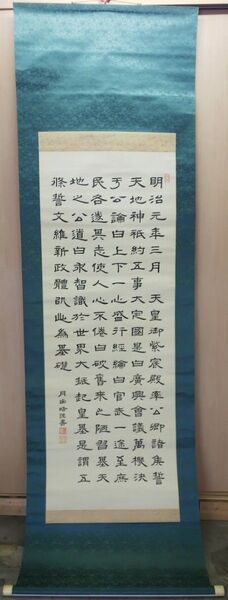 明治元年三月　天皇御紫宸殿率公卿諸侯誓
天地神祇約五事大定國是曰廣興會議萬機決
于公論曰上下一心盛行經綸曰官武一途至庶
民各遂其志使人心不倦曰破舊来之陋習基天
地之公道曰求智識於世界大振起皇基是謂五
條誓文維新政體以此為基礎